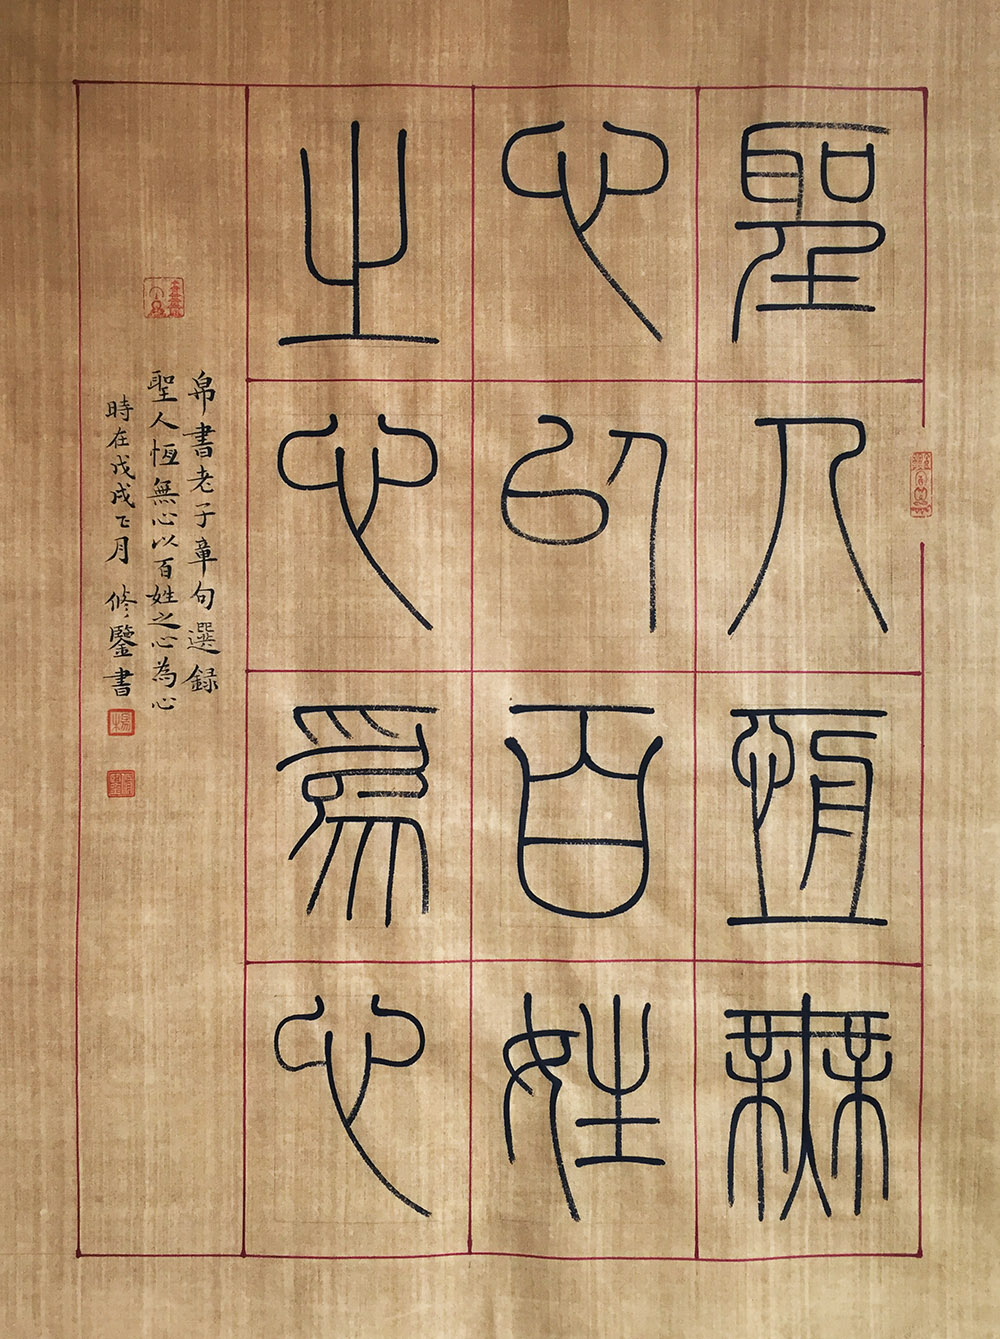 聖人恆無
心以百姓
之心為心
帛書老子章句選録
聖人恆無心以百姓之心為心
時在戊戌正月 修鑒書